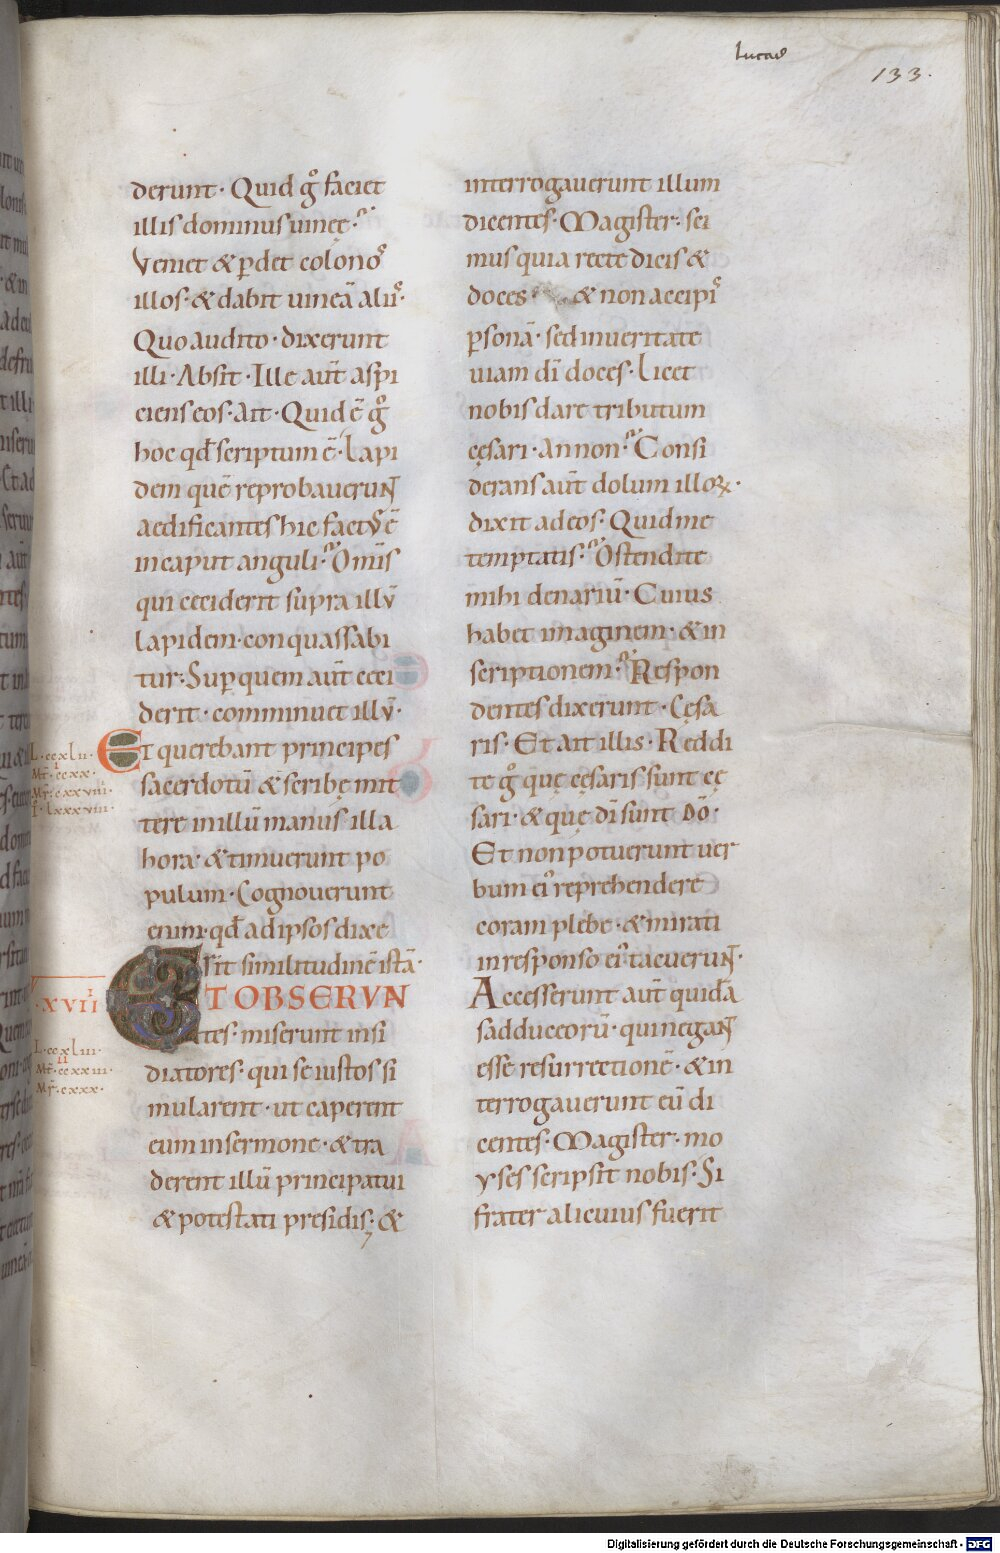 lucas
133.
derunt· Quid gͦ faciet
illis dominus uineę·
Veniet & ꝑdet colonoˢ
illos· & dabit uineā aliiˢ·
Quo audito· dixerunt
illi· Absit· Ille aut̄ aspi
ciens eos· Ait· Quid ē gͦ
hoc qđ scriptum ē· Lapi
dem quē reprobauerunt
aedificantes hic factus ē
in caput anguli· Omīs
qui ceciderit supra illū
lapidem· conquassabi
tur· Suꝑ quem aut̄ ceci
derit· comminuet illū·
Et querebant principes
sacerdotū & scribę mit
tere in illū manus illa
hora· & timuerunt po
pulum· Cognouerunt
enim· qđ ad ipsos dixe
rit similitudinē istā·
ET OBSERVAN
tes· miserunt insi
diatores· qui se iustos si
mularent· ut caperent
eum in sermone· & tra
derent illū principatui
& potestati presidis· &
L·ccxlii·
Mt̄·ccxx·
Mr̄·cxxviii·
I·lxxxviii·
·XVII
L·ccxliii·
Mt̄·ccxxiii·
Mr̄·cxxx·
interrogauerunt illum
dicentes· Magister· sci
mus quia recte dicis &
doces· & non accipiˢ
ꝑsonā· sed in ueritate
uiam dī doces· Licet
nobis dare tributum
cęsari· An non· Consi
derans aut̄ dolum illoꝝ·
dixit ad eos· Quid me
temptatis· Ostendite
mihi denariū· Cuius
habet imaginem· & in
scriptionem· Respon
dentes dixerunt· Cęsa
ris· Et ait illis· Reddi
te gͦ quę cęsaris sunt cę
sari· & quę dī sunt dō·
Et non potuerunt uer
bum eiˢ reprehendere
coram plebe· & mirati
in responso eiˢ tacuerunt·
Accesserunt aut̄ quidā
sadduceorū· qui negant
esse resurrectionē· & in
terrogauerunt eū di
centes· Magister· mo
yses scripsit nobis· Si
frater alicuius fuerit
Digitalisierung gefördert durch die Deutsche Forschungsgemeinschaft - DFG